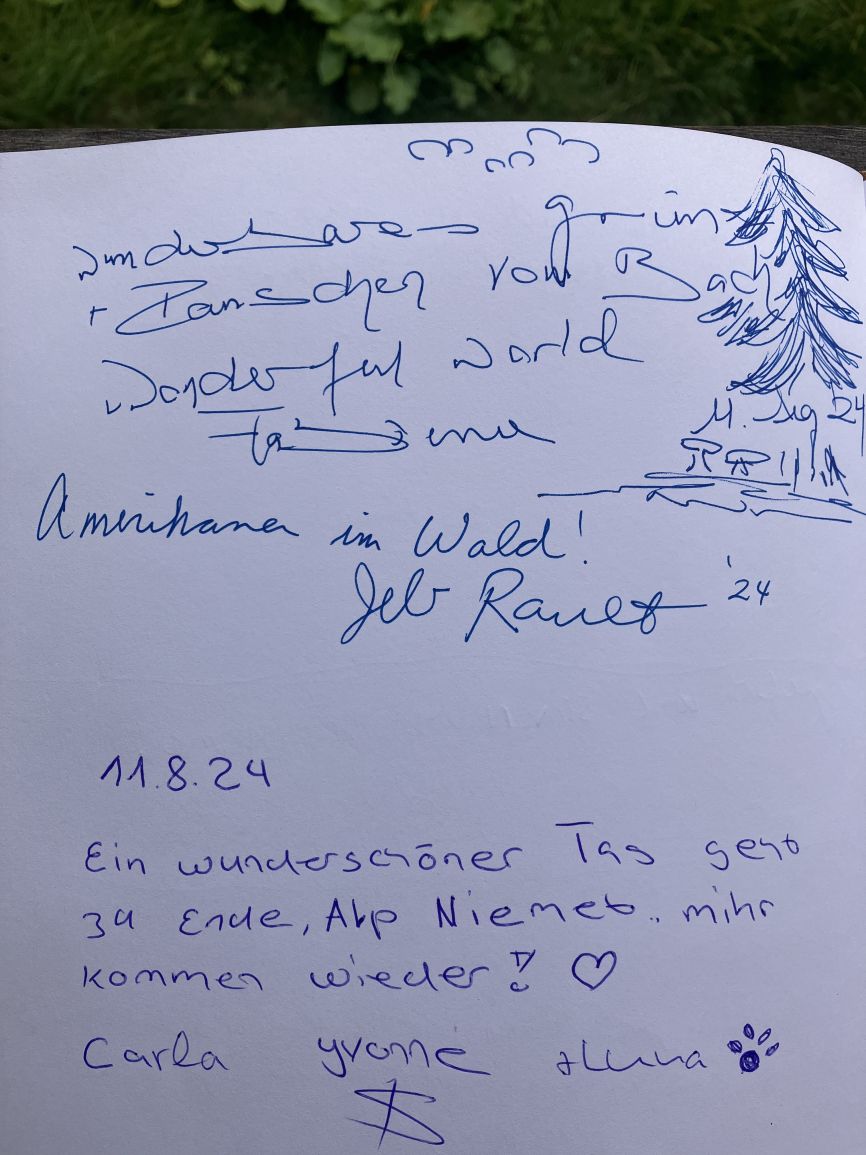 wunderbares grün
+ Rauschen vom Bach
Wonderful world
11. Aug 24
Amerikaner im Wald!
Jeb '24
11.8.24
Ein wunderschöner Tag geht
zu Ende, Alp Niemet.. mihr
kommen wieder! ♡
Carla Yvonne + Luna